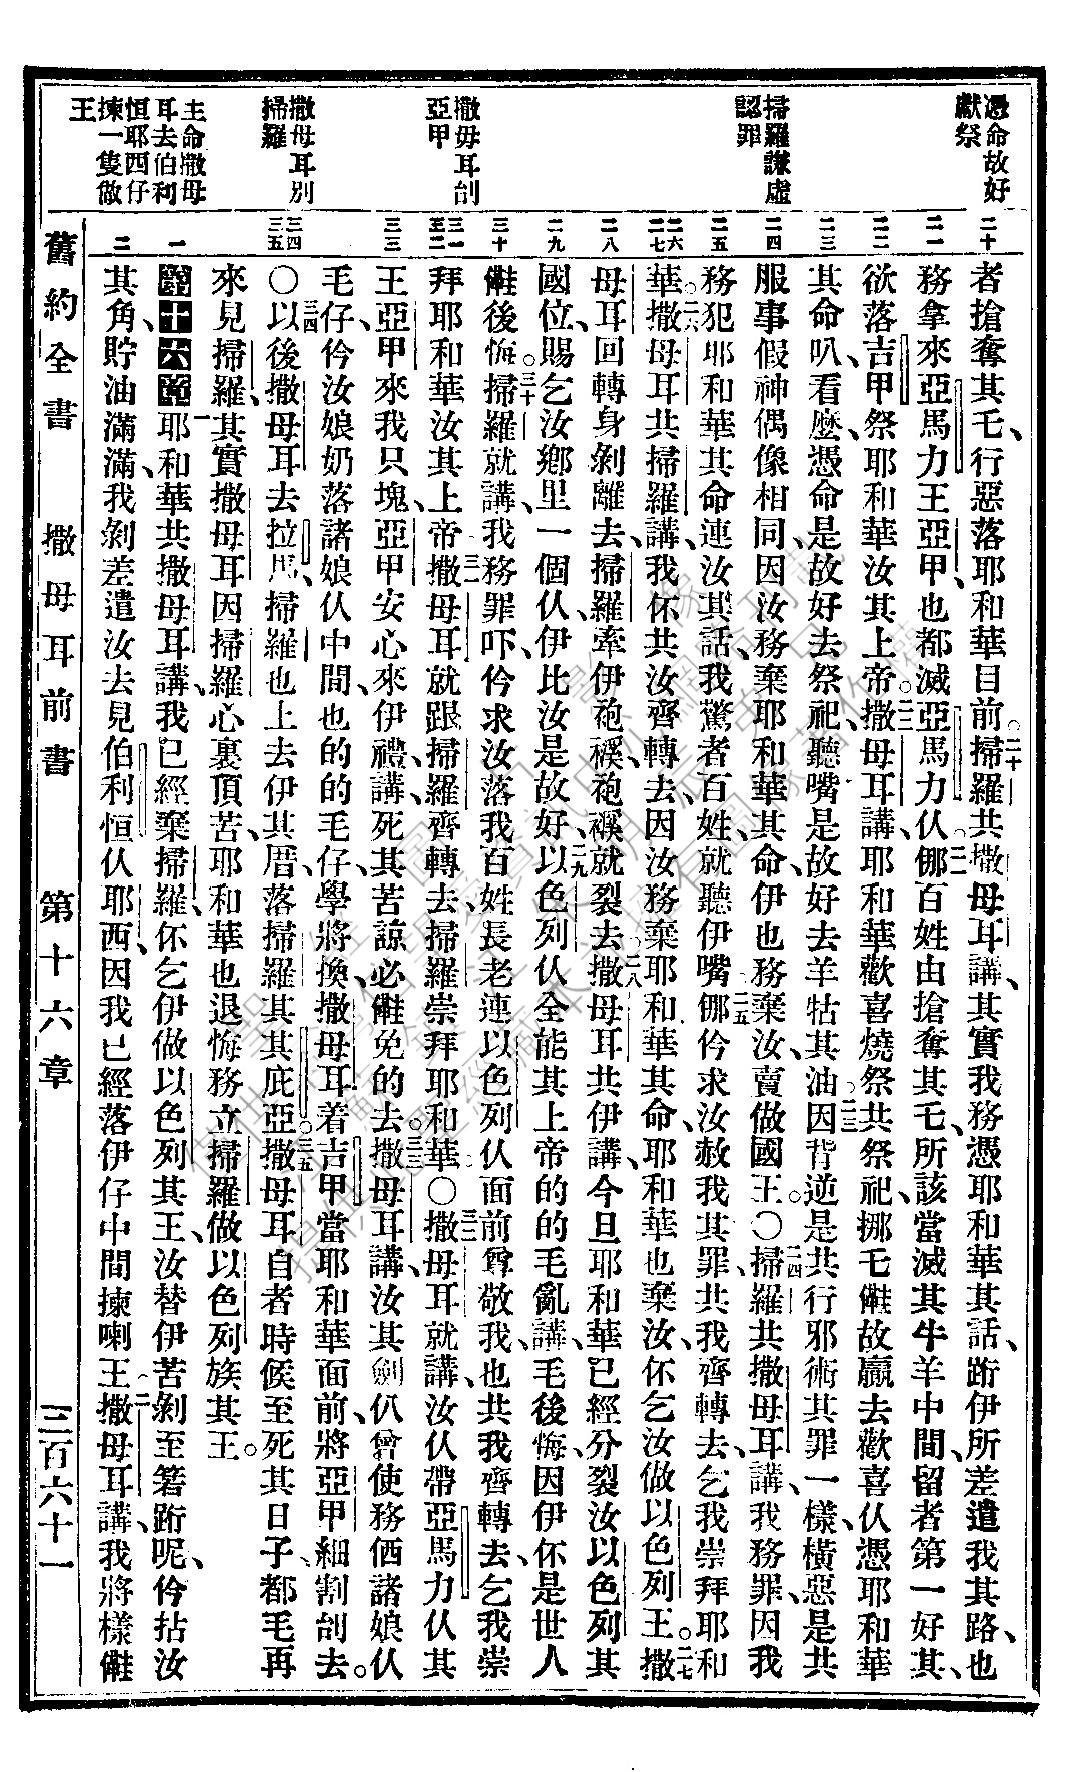 憑命故好
獻祭
掃羅謙虛
認罪
撒母耳刣
亞甲
撒母耳別
掃羅
主命撒母
耳去伯利
恒耶西仔
揀一隻做
王
二十
二一
二二
二三
二四
二五
二六
二七
二八
二九
三十
三一
至二
三三
三四
三五
一
二
者搶奪其乇、行惡落耶和華目前。二十掃羅共撒母耳講、其實我務憑耶和華其話、跨伊所差遣我其路、也
務拿來亞馬力王亞甲、也都滅亞馬力仈。二一𠆧百姓由搶奪其乇、所該當滅其牛羊中間、留者第一好其、
欲落吉甲、祭耶和華汝其上帝。二二撒母耳講、耶和華歡喜燒祭共祭祀、挪乇㑚故贏去歡喜仈憑耶和華
其命叭、看麽、憑命是故好去祭祀、聽嘴是故好去羊牯其油。二三因背逆是共行邪術其罪一樣、橫惡是共
服事假神偶像相同、因汝務棄耶和華其命、伊也務棄汝、賣做國王。〇二四掃羅共撒母耳講、我務罪、因我
務犯耶和華其命連汝其話、我驚者百姓、就聽伊嘴。二五𠆧仱求汝赦我其罪、共我齊轉去、乞我崇拜耶和
華。二六撒母耳共掃羅講、我伓共汝齊轉去、因汝務棄耶和華其命、耶和華也棄汝、伓乞汝做以色列王。二七撒
母耳回轉身剝離去、掃羅牽伊袍襆、袍襆就裂去。二八撒母耳共伊講、今旦耶和華已經分裂汝以色列其
國位、賜乞汝鄉里一個仈、伊比汝是故好。二九以色列仈全能其上帝的的毛亂講、毛後悔、因伊伓是世人
㑚後悔。三十掃羅就講、我務罪吓、仱求汝落我百姓長老連以色列仈面前尊敬我、也共我齊轉去、乞我崇
拜耶和華汝其上帝。三一撒母耳就跟掃羅齊轉去、掃羅崇拜耶和華。〇三二撒母耳就講、汝仈帶亞馬力仈其
王亞甲來我只塊、亞甲安心來伊禮、講、死其苦諒必㑚免的去。三三撒母耳講、汝其劍仈曾使務価諸娘仈
毛仔、仱汝娘奶落諸娘仈中間、也的的毛仔、學將換、撒母耳着吉甲當耶和華面前、將亞甲細割刣去。
〇三四以後撒母耳去拉馬、掃羅也上去伊其厝落掃羅其其庇亞。三五撒母耳自者時候至死其日子、都毛再
來見掃羅、其實撒母耳因掃羅心裏頂苦、耶和華也退悔務立掃羅做以色列族其王。
第十六章一耶和華共撒母耳講、我已經棄掃羅、伓乞伊做以色列其王、汝替伊苦剝至箬跨呢、仱拈汝
其角、貯油滿滿、我剝差遣汝去見伯利恒仈耶西、因我已經落伊仔中間揀喇王。二撒母耳講、我將樣㑚
舊約全書 撒母耳前書 第十六章 三百六十一